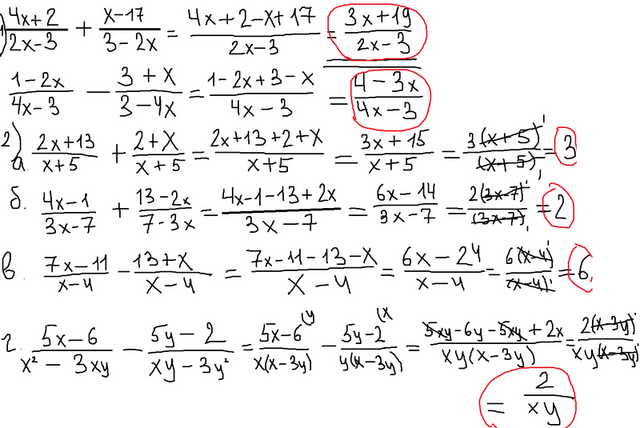 1) (4x+2)/(2x-3) + (x-17)/(3-2x) = (4x+2-x+17)/(2x-3) = (3x+19)/(2x-3)
(1-2x)/(4x-3) - (3+x)/(3-4x) = (1-2x+3-x)/(4x-3) = (4-3x)/(4x-3)
2) а. (2x+13)/(x+5) + (2+x)/(x+5) = (2x+13+2+x)/(x+5) = (3x+15)/(x+5) = 3(x+5)¹/(x+5)₁ = 3
б. (4x-1)/(3x-7) + (13-2x)/(7-3x) = (4x-1-13+2x)/(3x-7) = (6x-14)/(3x-7) = 2(3x-7)¹/(3x-7)₁ = 2
в. (7x-11)/(x-4) - (13+x)/(x-4) = (7x-11-13-x)/(x-4) = (6x-24)/(x-4) = 6(x-4)¹/(x-4)¹ = 6
г. (5x-6)/(x²-3xy) - (5y-2)/(xy-3y²) = (5x-6)(y/(x(x-3y)) - (5y-2)(x/(y(x-3y)) = (5xy-6y-5xy+2x)/(xy(x-3y)) = 2(x-3y)¹/(xy(x-3y)¹)
= 2/(xy)